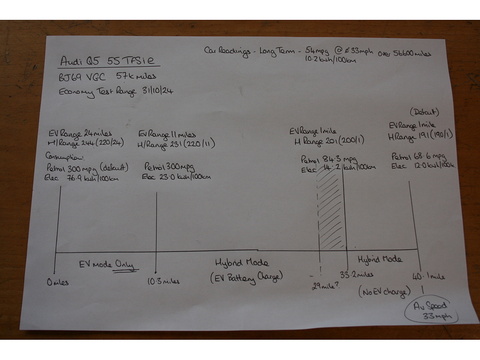 Audi Q5 55 TFSIe
Car Readings - Long Term - 54mpg @ 33mph
10.2 kwh/100km
ODO 56600 miles
BJ69 VGC 57k miles
Economy Test Range 31/10/24
(Default)
EV Range 24 miles
H/Range 244 (220/24)
EV Range 11 miles
H/Range 231 (220/11)
EV Range 1 mile
H Range 201 (200/1)
EV Range 1 mile
H Range 191 (190/1)
Consumption
Petrol 300 mpg (default)
Elec 76.9 kwh/100km
Petrol 300 mpg
Elec 23.0 kwh/100km
Petrol 84.5 mpg
Elec 14.2 kwh/100km
Petrol 68.6 mpg
Elec 12.0 kwh/100km
EV Mode Only
Hybrid Mode
(EV Battery Charge)
Hybrid Mode
(No EV charge)
0 miles
10.3 miles
29 mile?
35.2 miles
40.1 mile
Av Speed
33 mph